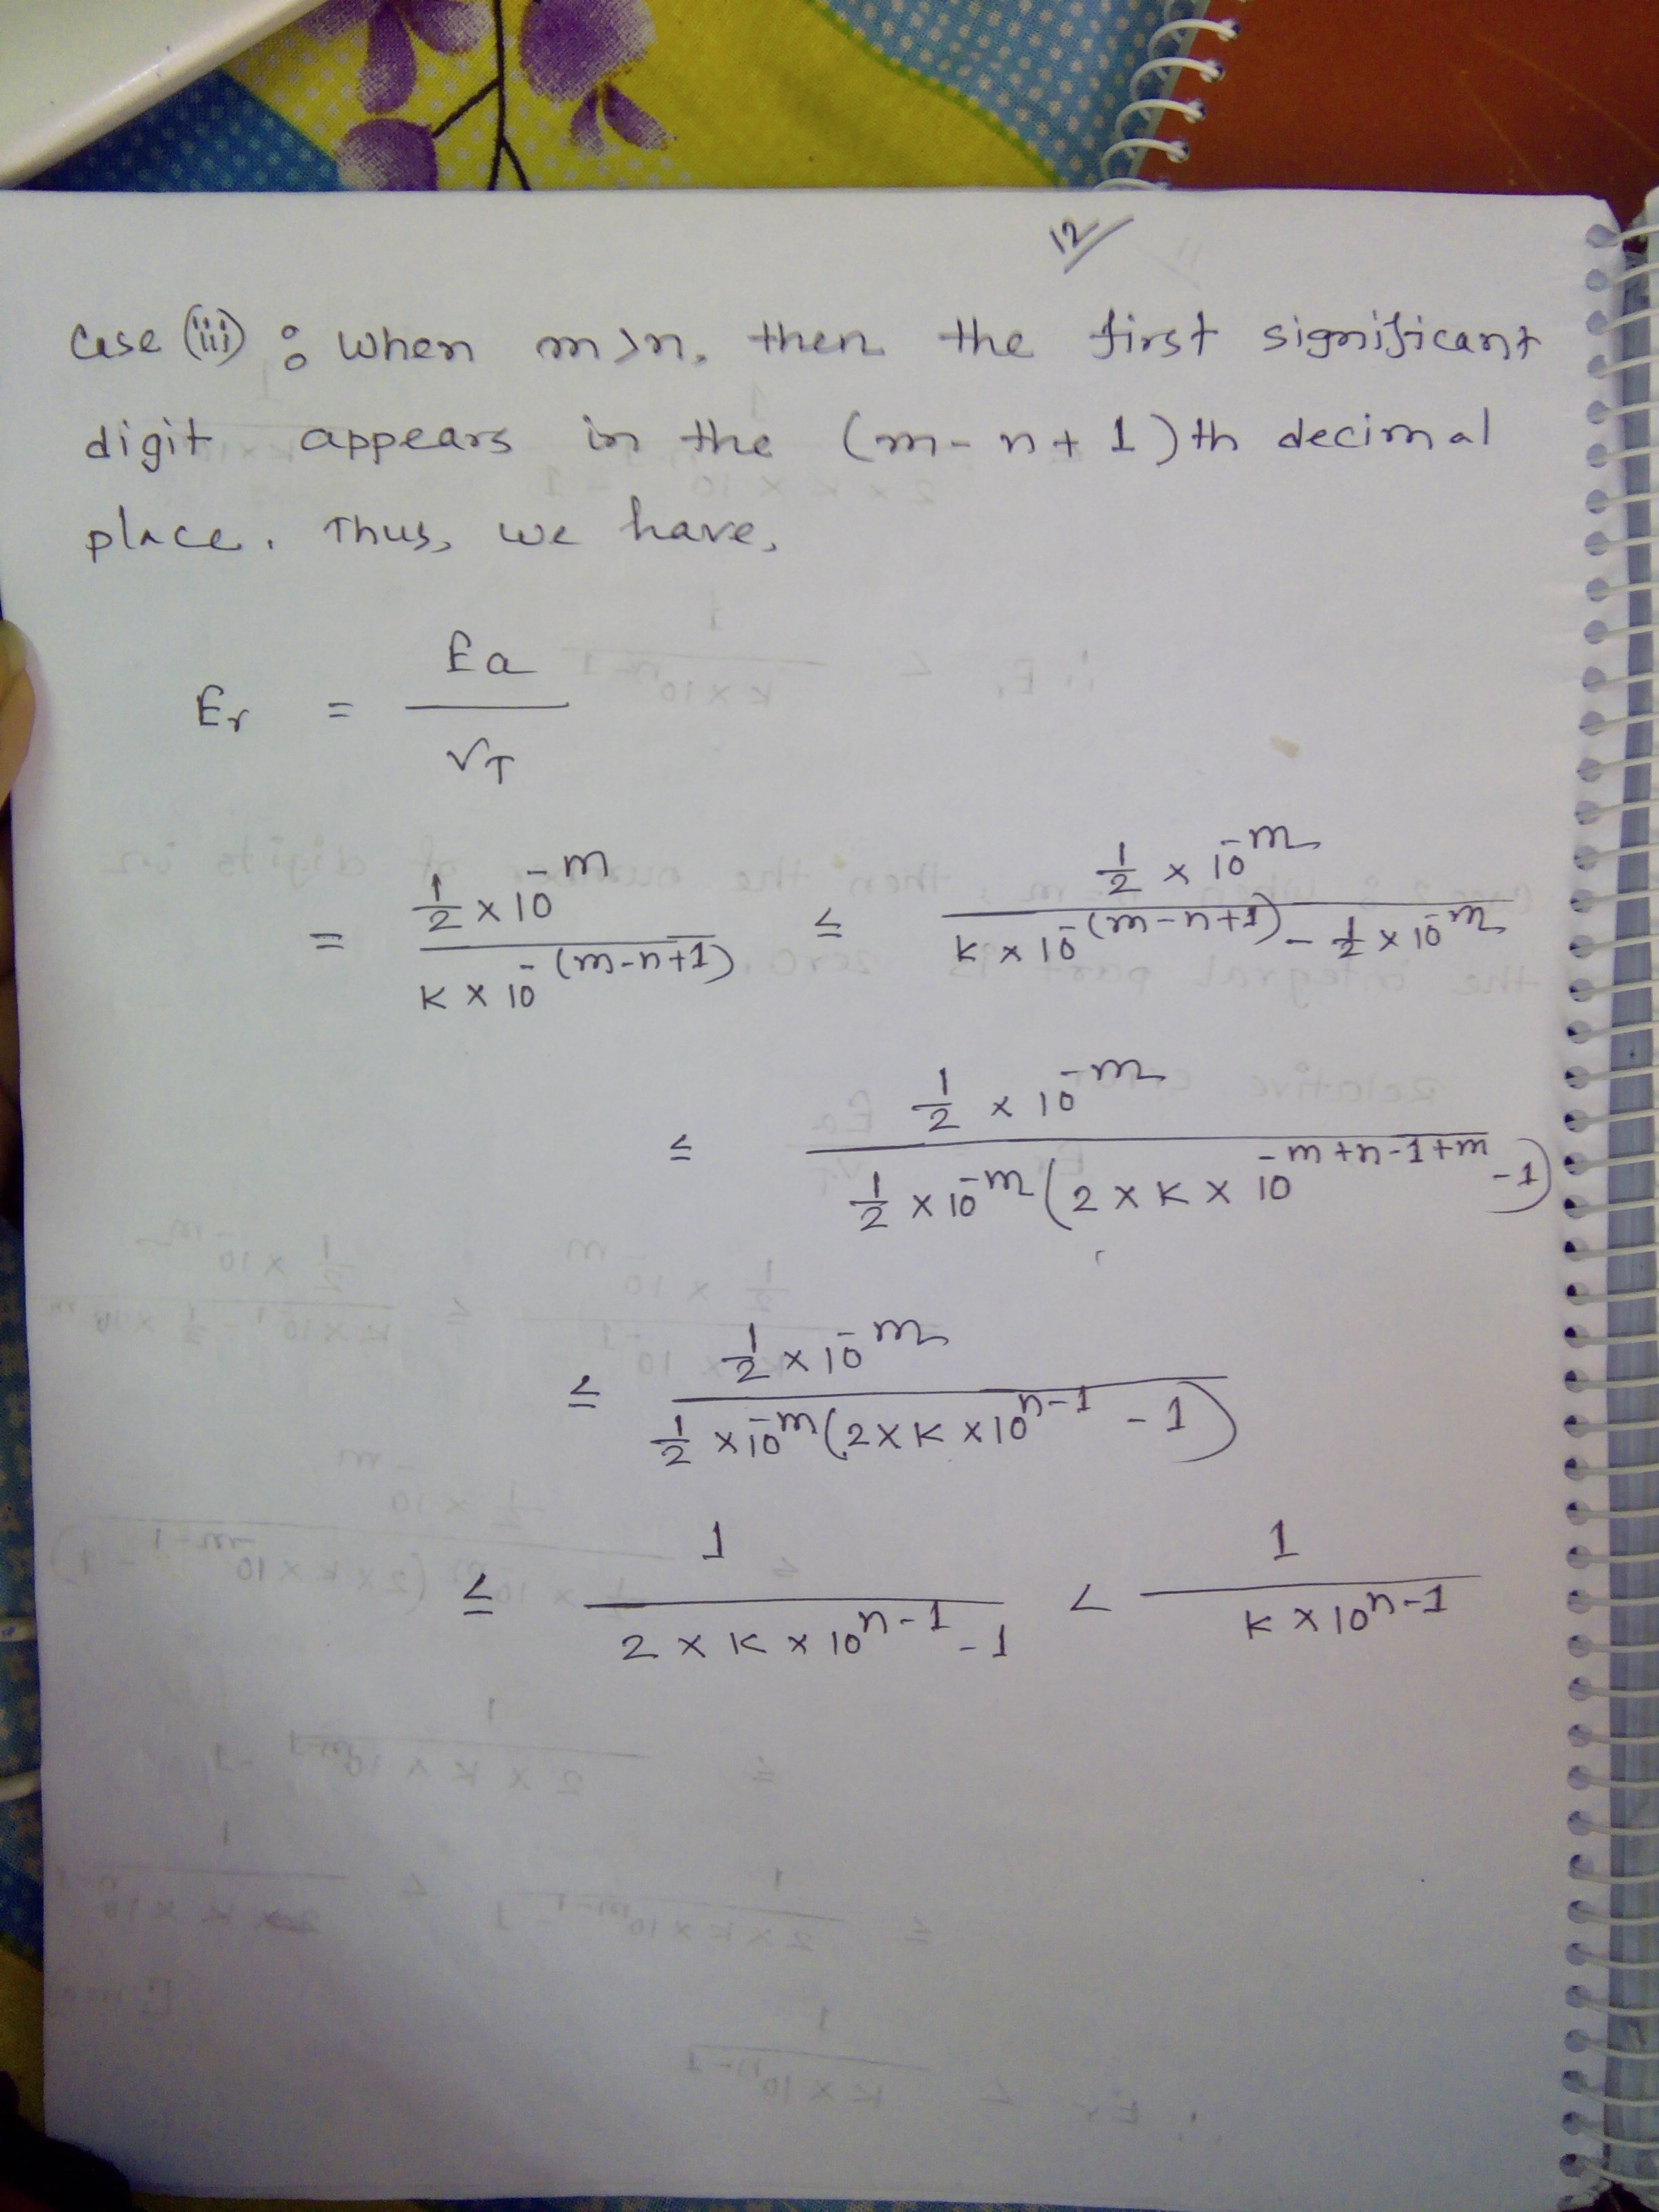 12
Case (iii) : When m>n, then the first significant
digit appears in the (m-n+1)th decimal
place. Thus, we have,
Er = Ea / VT
= (1/2 × 10^-m) / (K × 10^-(m-n+1)) ≤ (1/2 × 10^-m) / (K × 10^-(m-n+1) - 1/2 × 10^-m)
≤ (1/2 × 10^-m) / (1/2 × 10^-m (2 × K × 10^(-m+n-1+m) - 1))
≤ (1/2 × 10^-m) / (1/2 × 10^-m (2 × K × 10^(n-1) - 1))
≤ 1 / (2 × K × 10^(n-1) - 1) < 1 / (K × 10^(n-1))